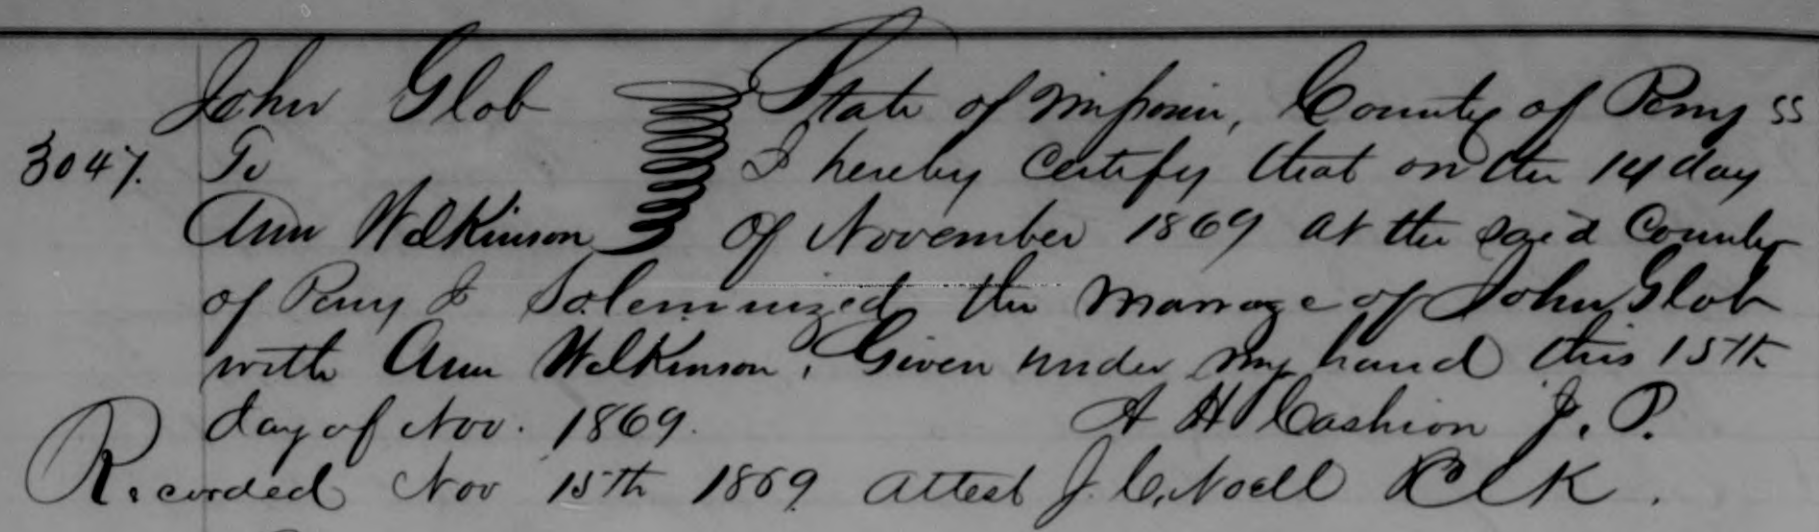 John Glob } State of Missouri, County of Perry SS
3047. To I hereby Certify that on the 14 day
Ann Wilkinson of November 1869 at the said County
of Perry I Solemnized the Marriage of John Glob
with Ann Wilkinson, Given under my hand this 15th
day of Nov. 1869. A H Cashion J. P.
Recorded Nov 15th 1869 attest J. C. Noell Clk.